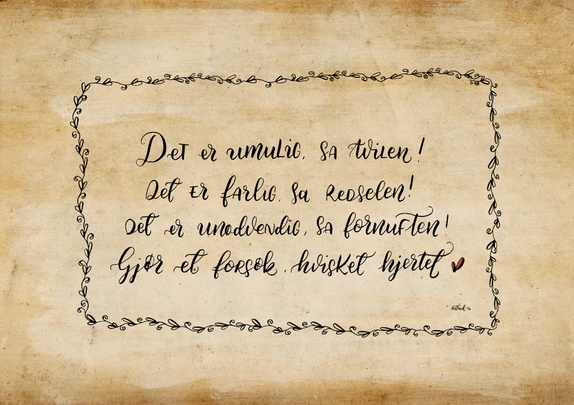 Det er umulig, sa tvilen!
Det er farlig, sa redselen!
Det er unødvendig, sa fornuften!
Gjør et forsøk, hvisket hjertet